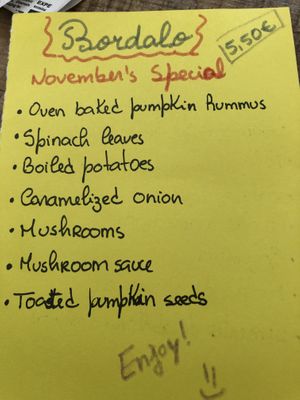 EXPE
Bordalo
5,50€
November's Special
• Oven baked pumpkin hummus
• Spinach leaves
• Boiled potatoes
• Caramelized onion
• Mushrooms
• Mushroom sauce
• Toasted pumpkin seeds
Enjoy!